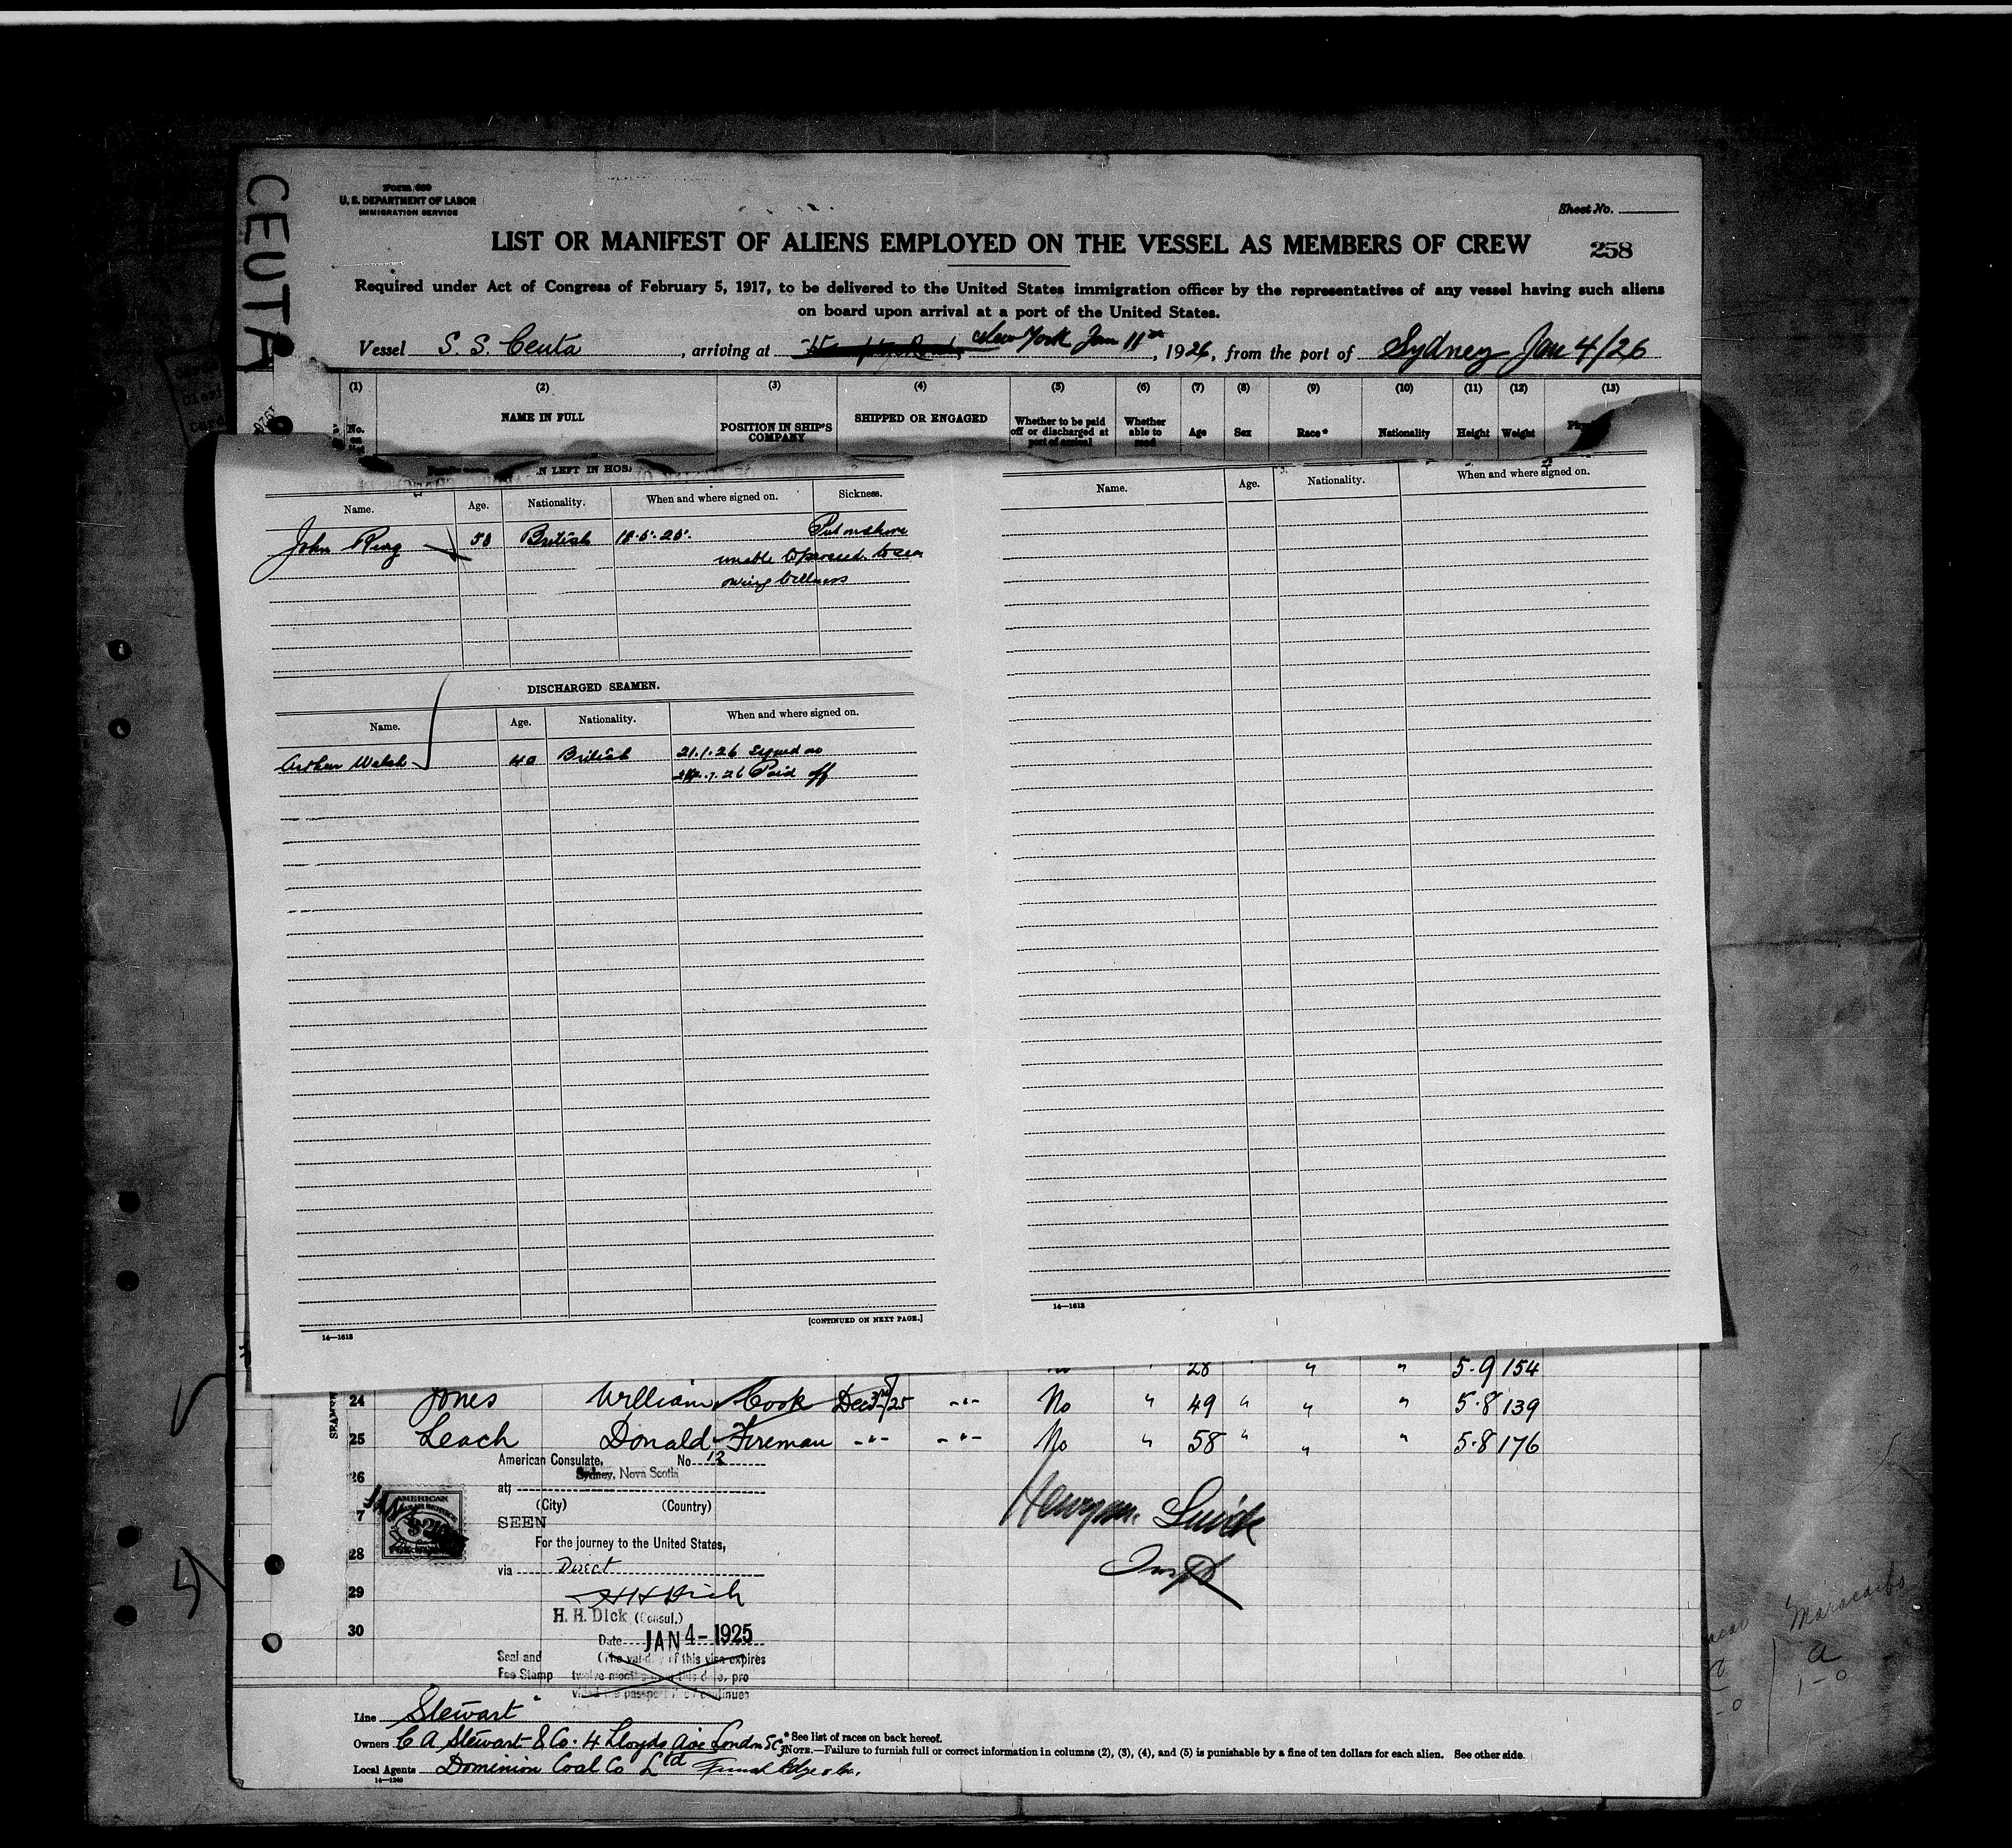 CEUTA
Form 680
U. S. DEPARTMENT OF LABOR
IMMIGRATION SERVICE
Sheet No.
LIST OR MANIFEST OF ALIENS EMPLOYED ON THE VESSEL AS MEMBERS OF CREW
258
Required under Act of Congress of February 5, 1917, to be delivered to the United States immigration officer by the representatives of any vessel having such aliens
on board upon arrival at a port of the United States.
Vessel S. S. Ceuta, arriving at New York Jan 11th, 1926, from the port of Sydney Jan 4/26
(1) (2) (3) (4) (5) (6) (7) (8) (9) (10) (11) (12) (13)
No. on list
NAME IN FULL
POSITION IN SHIP'S COMPANY
SHIPPED OR ENGAGED
Whether to be paid off or discharged at port of arrival
Whether able to read
Age Sex Race* Nationality Height Weight
N LEFT IN HOS
Name. Age. Nationality. When and where signed on. Sickness.
John Ring 58 British 18.5.25. Put on shore
unable to proceed to sea
owing to illness
DISCHARGED SEAMEN.
Name. Age. Nationality. When and where signed on.
Arthur Walsh 40 British 21.1.26 Signed on
.1.26 Paid off
[CONTINUED ON NEXT PAGE.]
14—1613
Name. Age. Nationality. When and where signed on.
14—1613
28 " " " 5.9 154
24 Jones William Cook Dec 3rd/25 -"- No " 49 " " " 5.8 139
25 Leach Donald Fireman -"- -"- No " 58 " " " 5.8 176
26
7
28
29
30
American Consulate, No 12
Sydney, Nova Scotia
at
(City) (Country)
SEEN
For the journey to the United States,
via Direct
H H Dick
H. H. Dick (Consul.)
Date JAN 4- 1925
Seal and Fee Stamp
(The validity of this visa expires
twelve months from this date, pro
vided the passport then continues
AMERICAN
Line Stewart
Owners C A Stewart & Co. 4 Lloyds Ave London EC3
Local Agents Dominion Coal Co Ltd
14—1240
*See list of races on back hereof.
NOTE.—Failure to furnish full or correct information in columns (2), (3), (4), and (5) is punishable by a fine of ten dollars for each alien. See other side.
Maracaibo
a
1-0